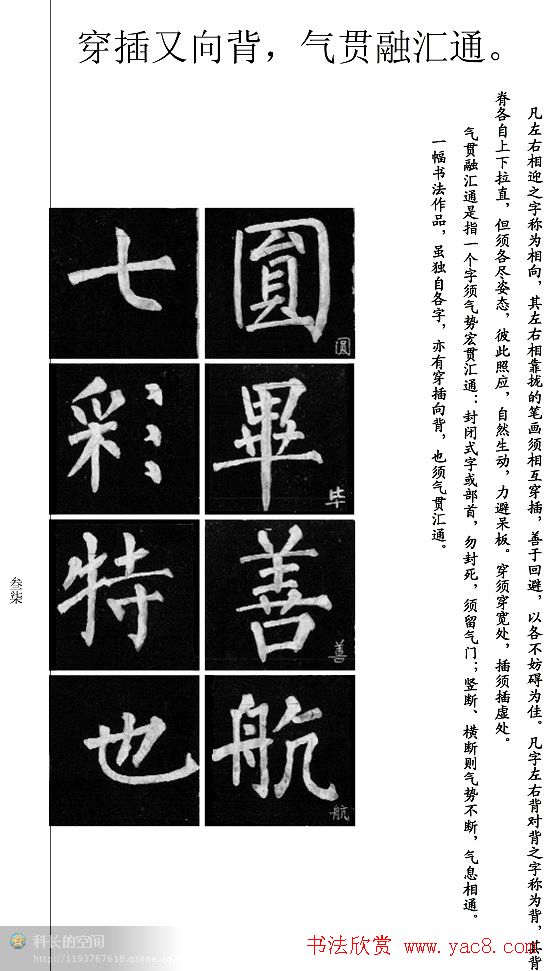 穿插又向背，气贯融汇通。
凡左右相迎之字称为相向，其左右相靠拢的笔画须相互穿插，善于回避，以各不妨碍为佳。凡字左右背对背之字称为背，其背
脊各自上下拉直，但须各尽姿态，彼此照应，自然生动，力避呆板。穿须穿宽处，插须插虚处。
气贯融汇通是指一个字须气势宏贯汇通：封闭式字或部首，勿封死，须留气门；竖断、横断则气势不断，气息相通。
一幅书法作品，虽独自各字，亦有穿插向背，也须气贯汇通。
圓畢善航
圆
毕
善
航
七彩特也
叁柒
科长的空间
http://1193767618.qzone.qq.
书法欣赏 www.yac8.com